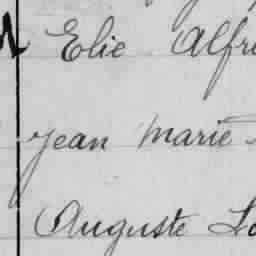 Elie Alfr
Jean Marie
Auguste Lo